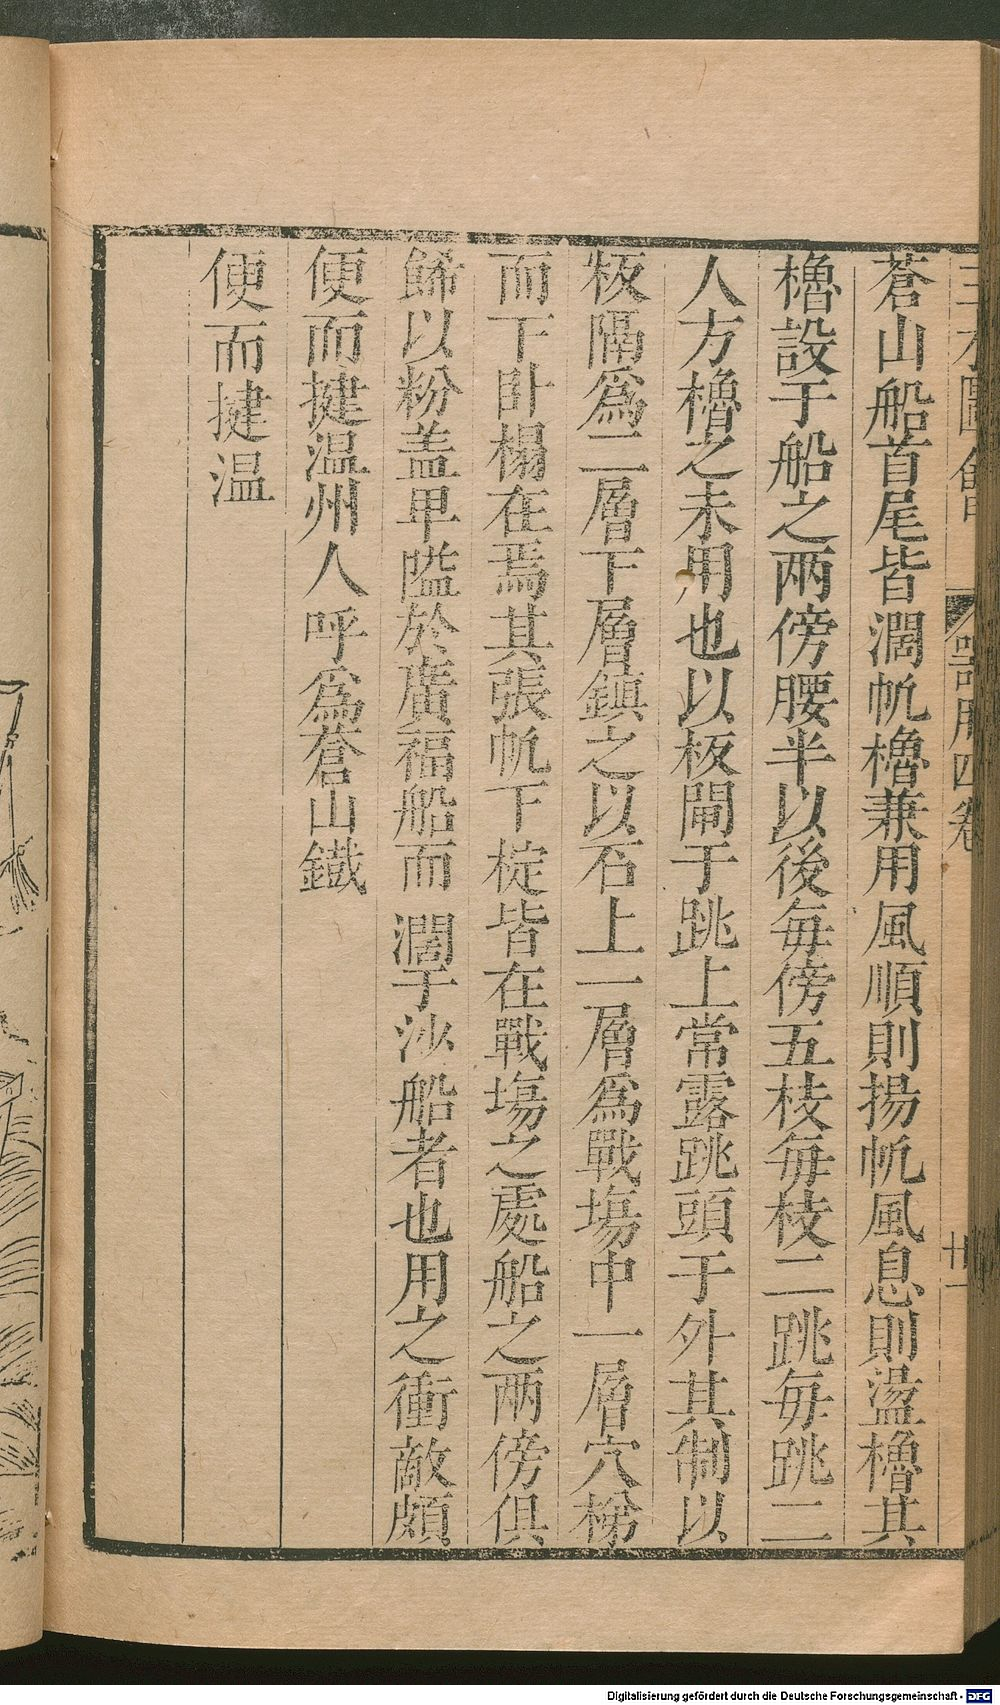 蒼山船首尾皆濶帆櫓兼用風順則揚帆風息則盪櫓其
櫓設于船之兩傍腰半以後每傍五枝每枝二跳每跳二
人方櫓之未用也以板閘于跳上常露跳頭于外其制以
板隔為二層下層鎮之以石上一層為戰塲中一層穴梯
而下卧榻在焉其張帆下椗皆在戰塲之處船之兩傍俱
餙以粉盖卑隘於廣福船而濶于沙船者也用之衝敵頗
便而捷温州人呼為蒼山鐵
便而捷温
器用四卷
廿一
Digitalisierung gefördert durch die Deutsche Forschungsgemeinschaft - DFG